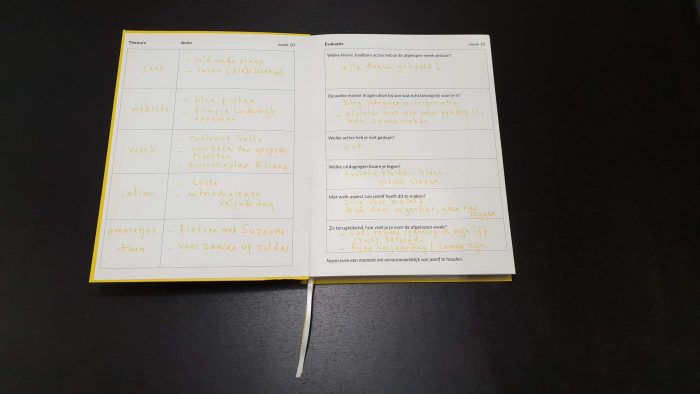 Thema's Actie week 10
rust
- voldoende slaap
- lezen (bieb boeken)
website
- blog posten
- filmpje Lodewijk
opnemen
werk
- contract Sally
- voorbereiden gesprek
Maarten
- Eliane
- Lotte
- uitnodigingen
verjaardag
ommetjes
tuin
- fietsen met Suzanne
- voorzaaien op zolder
Evaluatie week 10
Welke kleine, haalbare acties heb je de afgelopen week gedaan?
alle doelen gehaald!
Op welke manier dragen deze bij aan wat echt belangrijk voor je is?
blog schrijven = inspiratie
+ afsluiten wat niet meer prettig is,
meer samenwerken
Welke acties heb je niet gedaan?
nvt
Welke uitdagingen kwam je tegen?
fysieke klacht - blaas -
slecht slapen
Met welk aspect van jezelf heeft dit te maken?
zorg voor mezelf
druk door urgentie, geen nee
zeggen
Zo terugkijkend, hoe voel je je over de afgelopen week?
spanning in mijn lijf
(buik), bezorgd.
- fijne verjaardag / samen zijn.
Neem even een moment om onvoorwaardelijk van jezelf te houden.